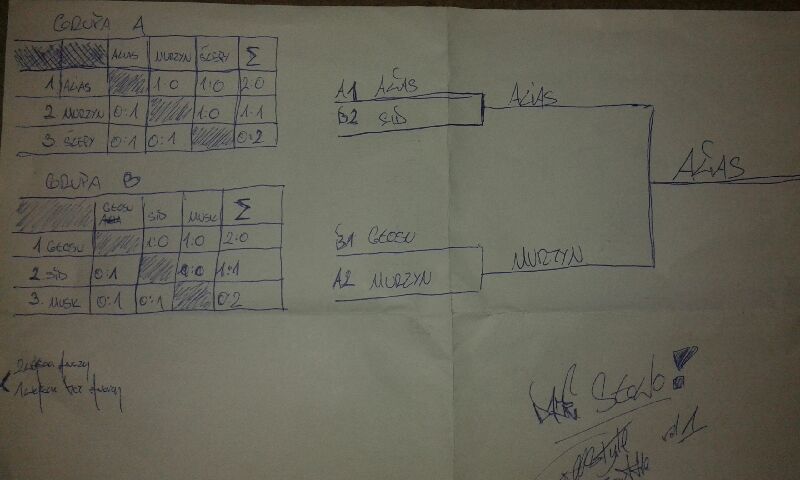 GRUPA A
ALIAS MURZYN ŚLEPY Σ
1 ALIAS 1:0 1:0 2:0
2 MURZYN 0:1 1:0 1:1
3. ŚLEPY 0:1 0:1 0:2
GRUPA B
GŁOSU SID MUSK Σ
1 GŁOSU 1:0 1:0 2:0
2 SID 0:1 1:1
3. MUSK 0:1 0:1 0:2
A1 ALIAS
B2 SID
ALIAS
ALIAS
B1 GŁOSU
A2 MURZYN
MURZYN
SŁOWO!
vol 1